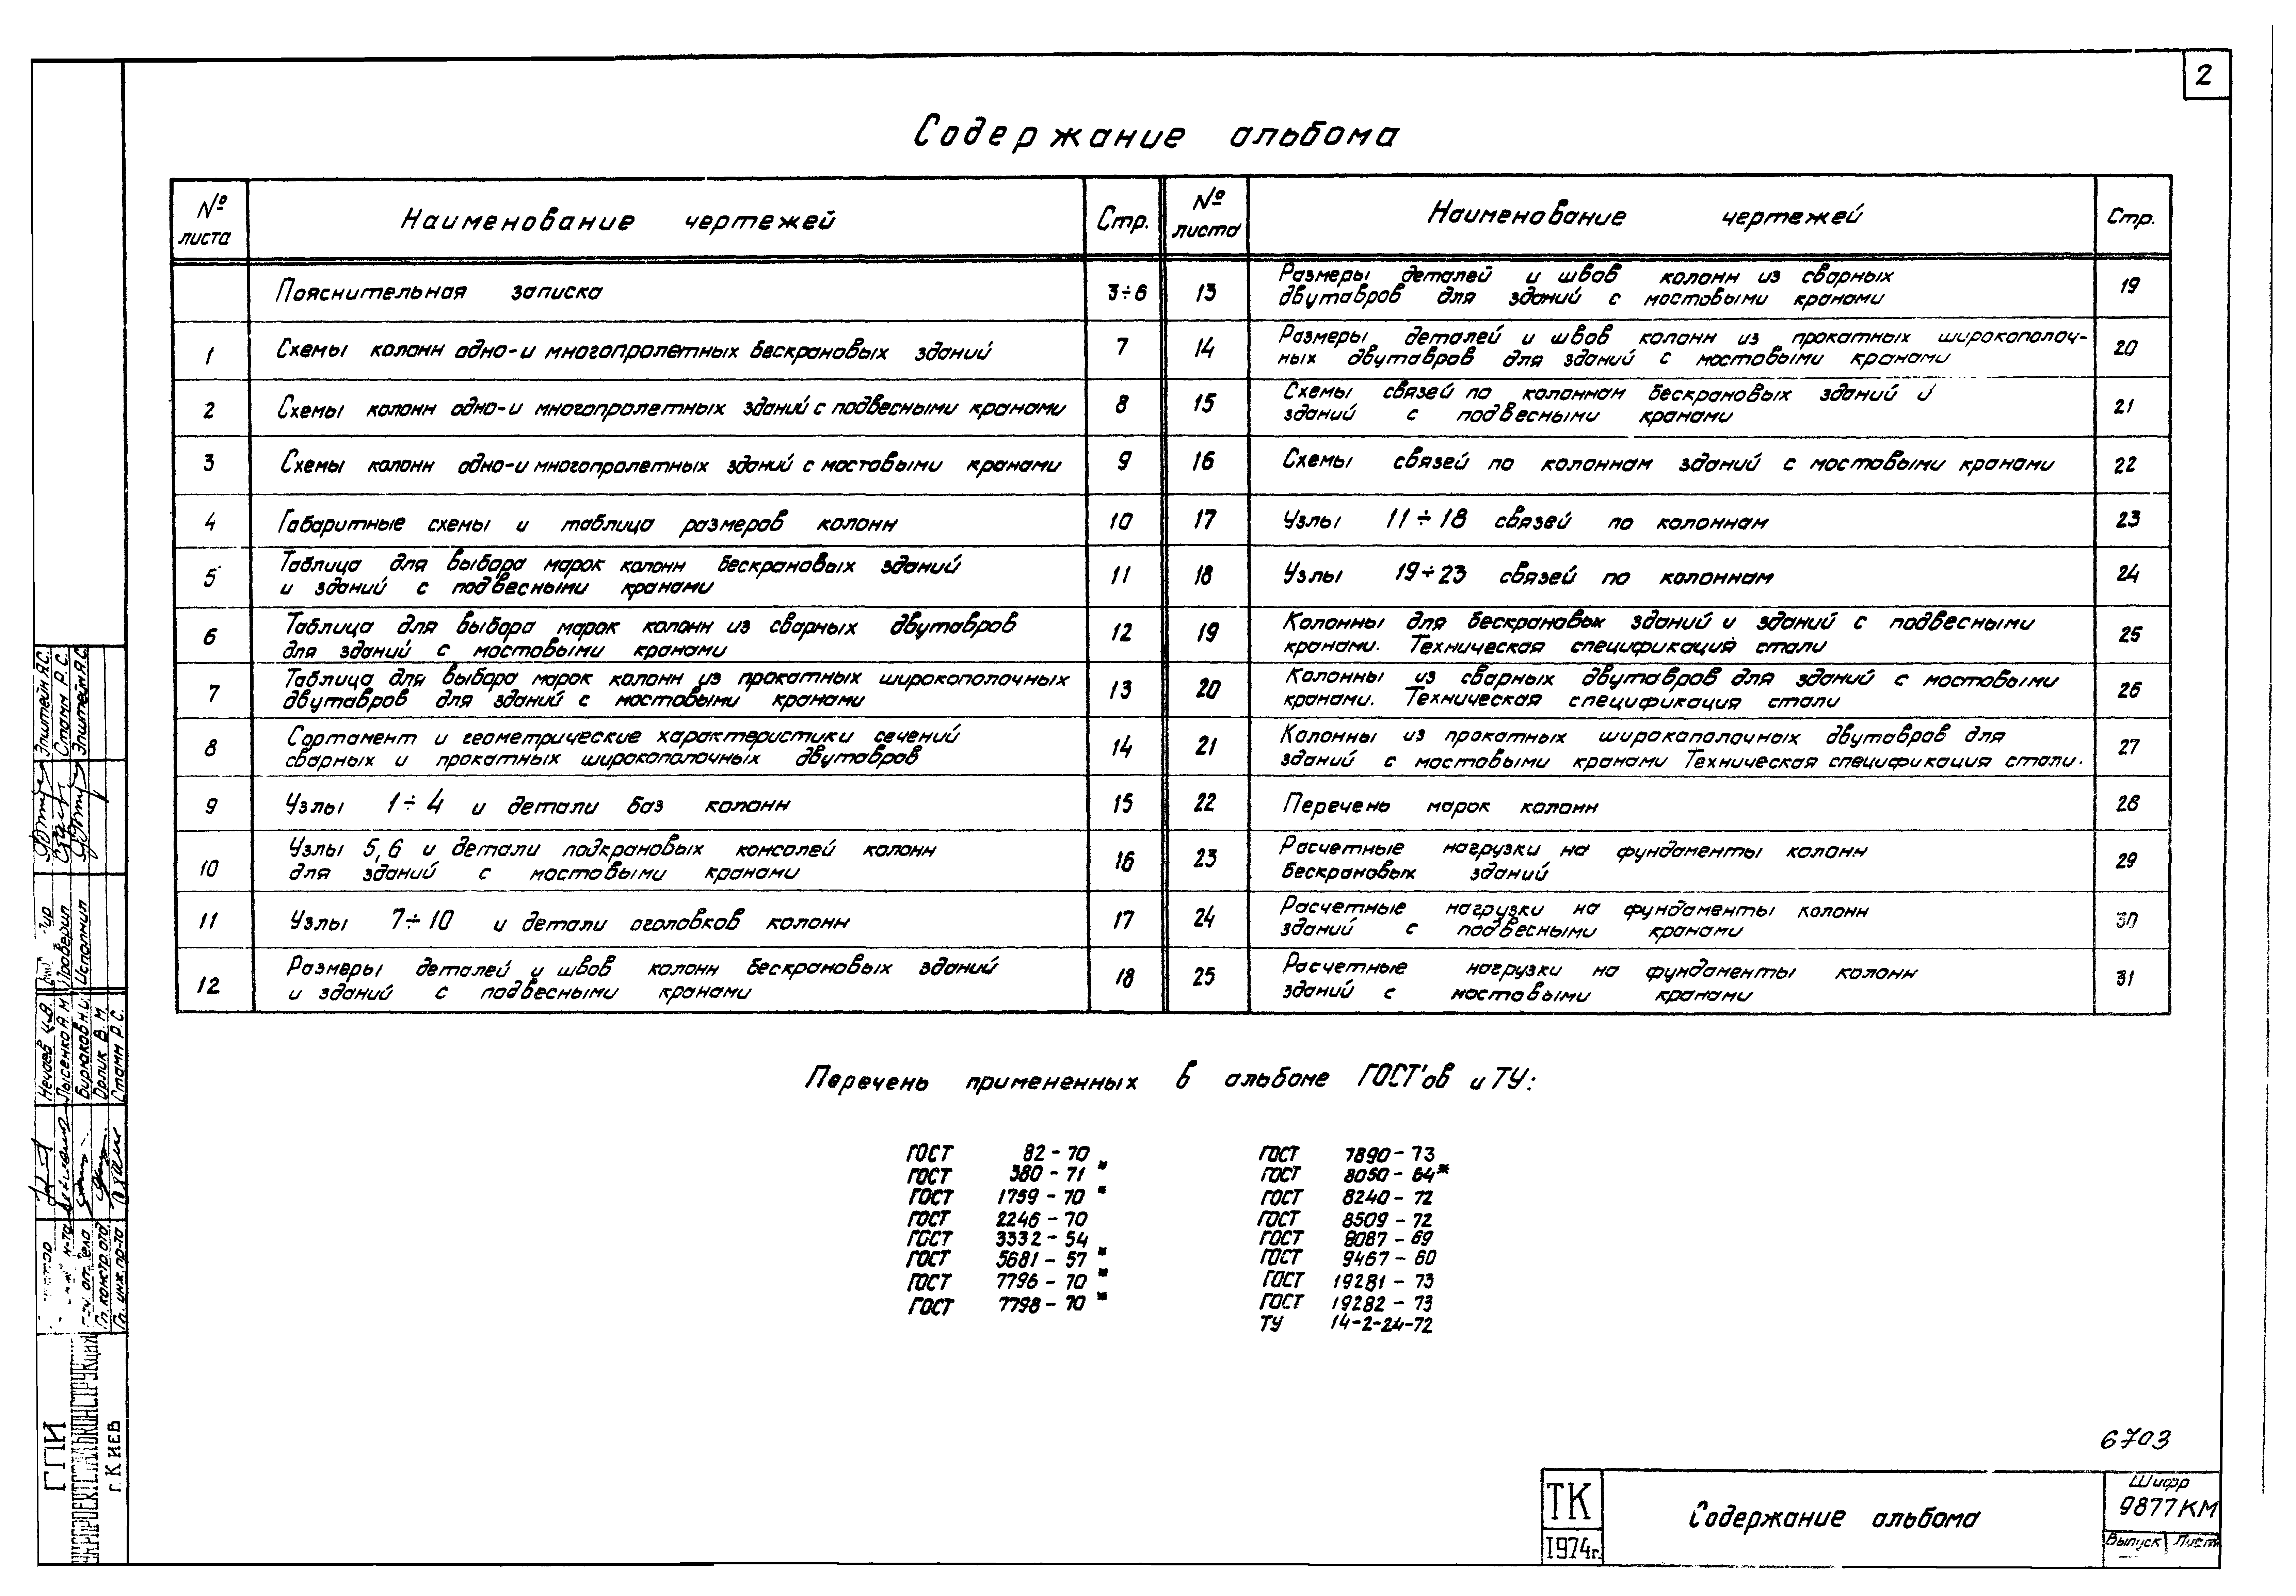 2
Содержание альбома
№ листа
Наименование чертежей
Стр.
№ листа
Наименование чертежей
Стр.
Пояснительная записка
3÷6
1
Схемы колонн одно-и многопролетных бескрановых зданий
7
2
Схемы колонн одно-и многопролетных зданий с подвесными кранами
8
3
Схемы колонн одно-и многопролетных зданий с мостовыми кранами
9
4
Габаритные схемы и таблица размеров колонн
10
5
Таблица для выбора марок колонн бескрановых зданий
и зданий с подвесными кранами
11
6
Таблица для выбора марок колонн из сварных двутавров
для зданий с мостовыми кранами
12
7
Таблица для выбора марок колонн из прокатных широкополочных
двутавров для зданий с мостовыми кранами
13
8
Сортамент и геометрические характеристики сечений
сварных и прокатных широкополочных двутавров
14
9
Узлы 1÷4 и детали баз колонн
15
10
Узлы 5,6 и детали подкрановых консолей колонн
для зданий с мостовыми кранами
16
11
Узлы 7÷10 и детали оголовков колонн
17
12
Размеры деталей и швов колонн бескрановых зданий
и зданий с подвесными кранами
18
13
Размеры деталей и швов колонн из сварных
двутавров для зданий с мостовыми кранами
19
14
Размеры деталей и швов колонн из прокатных широкополоч-
ных двутавров для зданий с мостовыми кранами
20
15
Схемы связей по колоннам бескрановых зданий и
зданий с подвесными кранами
21
16
Схемы связей по колоннам зданий с мостовыми кранами
22
17
Узлы 11÷18 связей по колоннам
23
18
Узлы 19÷23 связей по колоннам
24
19
Колонны для бескрановых зданий и зданий с подвесными
кранами. Техническая спецификация стали
25
20
Колонны из сварных двутавров для зданий с мостовыми
кранами. Техническая спецификация стали
26
21
Колонны из прокатных широкополочных двутавров для
зданий с мостовыми кранами Техническая спецификация стали.
27
22
Перечень марок колонн
28
23
Расчетные нагрузки на фундаменты колонн
бескрановых зданий
29
24
Расчетные нагрузки на фундаменты колонн
зданий с подвесными кранами
30
25
Расчетные нагрузки на фундаменты колонн
зданий с мостовыми кранами
31
Перечень примененных в альбоме ГОСТ'ов и ТУ:
ГОСТ 82-70
ГОСТ 380-71*
ГОСТ 1759-70*
ГОСТ 2246-70
ГОСТ 3332-54
ГОСТ 5681-57*
ГОСТ 7796-70*
ГОСТ 7798-70*
ГОСТ 7890-73
ГОСТ 8050-64*
ГОСТ 8240-72
ГОСТ 8509-72
ГОСТ 9087-69
ГОСТ 9467-60
ГОСТ 19281-73
ГОСТ 19282-73
ТУ 14-2-24-72
6703
ТК
1974г.
Содержание альбома
Шифр
9877КМ
Выпуск
Лист
ГПИ
УКРПРОЕКТСТАЛЬКОНСТРУКЦИЯ
г. КИЕВ
Гл. констр. отд.
Гл. инж. пр-та
Нечаев
Лысенко А.М.
Бирюков Н.И.
Орлик В.М.
Стамм Р.С.
Проверил
Исполнил
Эпштейн Я.С.
Стамм Р.С.
Эпштейн Я.С.